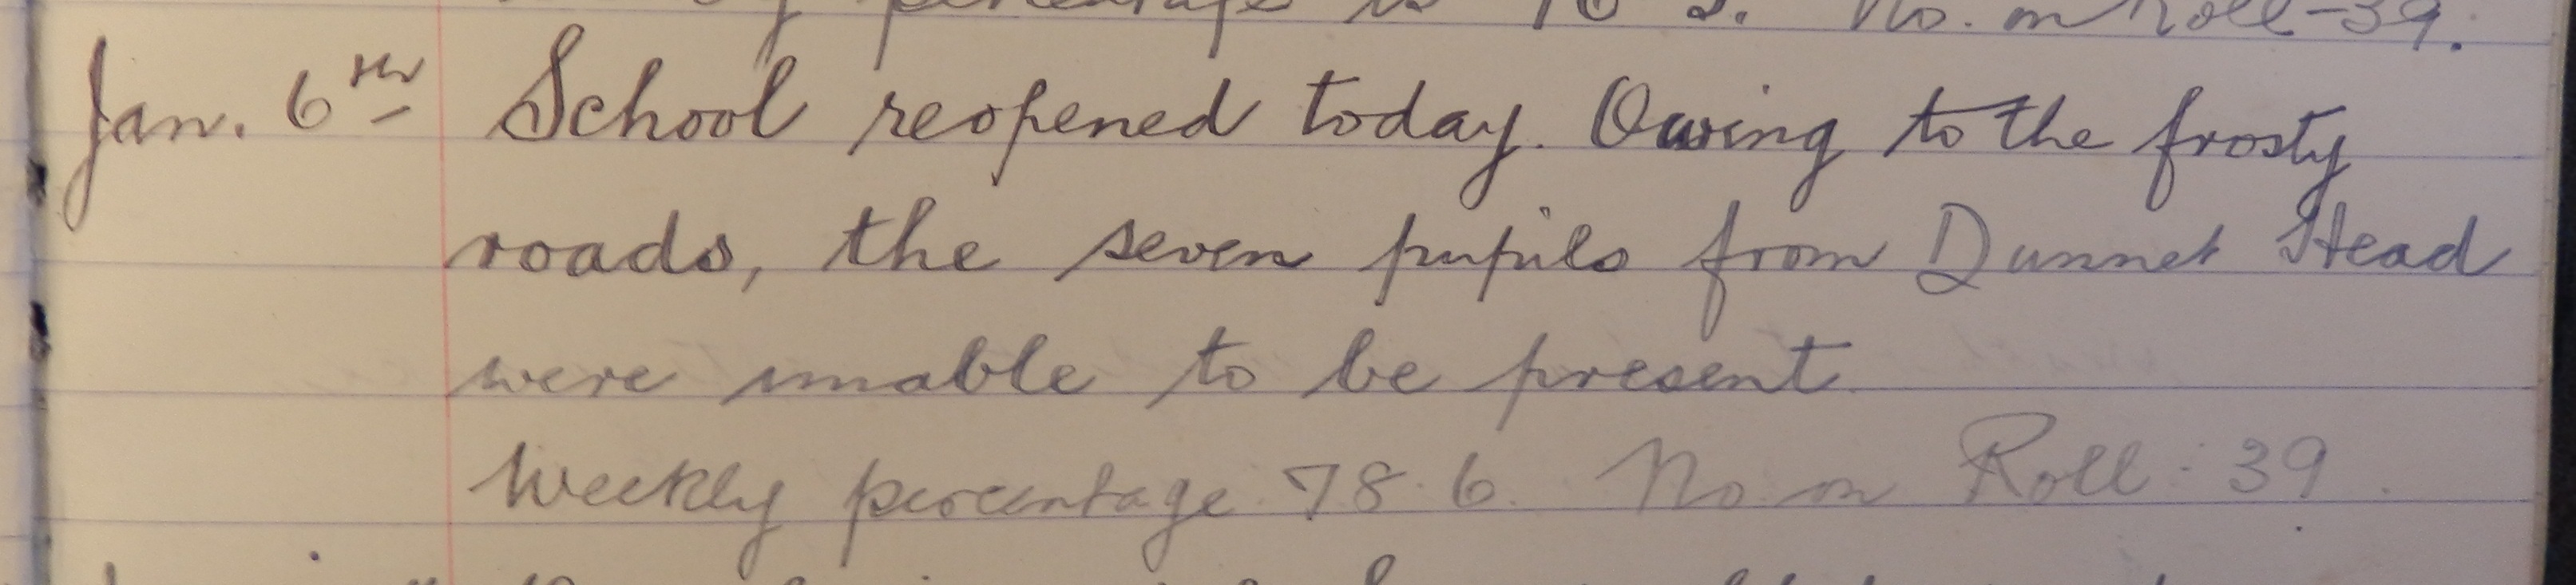 percentage is No. on Roll - 39.
Jan. 6th School reopened today. Owing to the frosty
roads, the seven pupils from Dunnet Head
were unable to be present.
Weekly percentage 78.6. No. on Roll : 39.